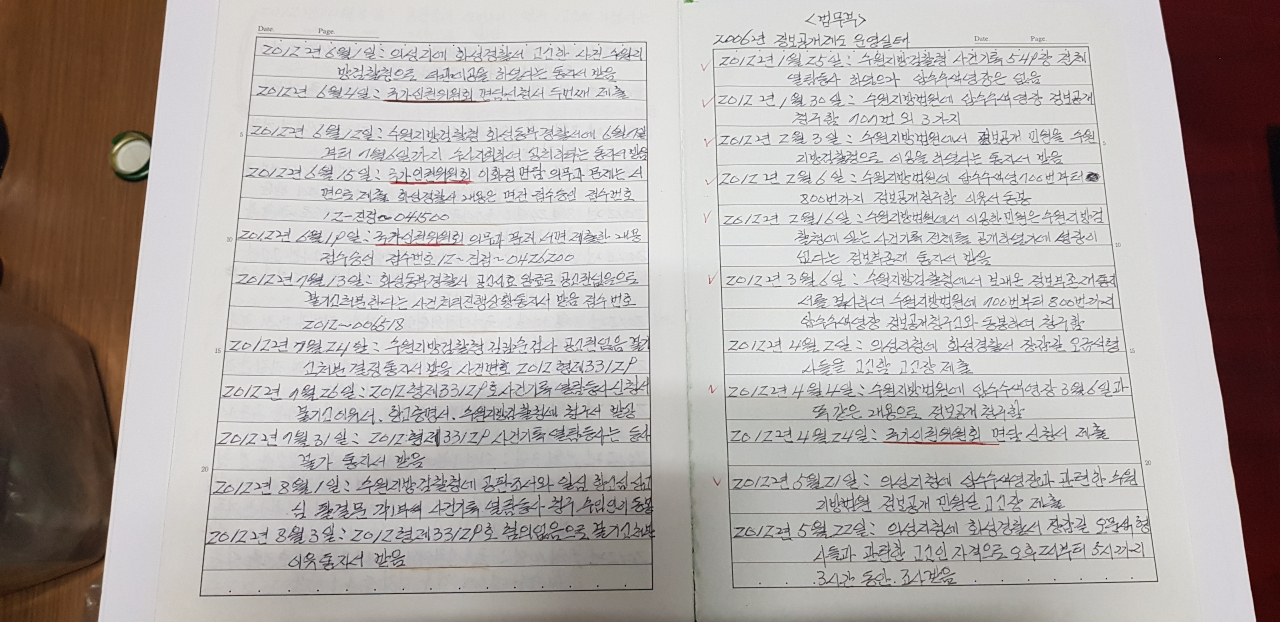 Date. Page.
2012년 6월 1일: 의성지청에 화성경찰서 고소한 사건 수원지
방검찰청으로 이송을 하였다는 통지서 받음
2012년 6월 4일: 국가인권위원회 면담신청서 두번째 제출
2012년 6월 12일: 수원지방검찰청 화성동부경찰서에 6월 7일
부터 7월 6일까지 수사지휘하다는 통지서 받음
2012년 6월 15일: 국가인권위원회 이화경 면담 의무과 문제는 서
면으로 제출 화성경찰서 내용은 면전 접수승인 접수번호
12-진정-041500
2012년 6월 19일: 국가인권위원회 의무과 문제 서면 제출한 내용
접수승인 접수번호 12-진정-0426200
2012년 7월 13일: 화성동부경찰서 공소시효 완료로 공소권없음으로
불기소처분한다는 사건처리진행상황통지서 받음 접수번호
2012-006518
2012년 7월 24일: 수원지방검찰청 검사 공소권없음 불기
소처분 결정 통지서 받음 사건번호 2012형제33129
2012년 7월 26일: 2012형제33129호사건기록 열람등사신청서
불기소이유서, 항고증명서, 수원지방검찰청에 청구서 발송
2012년 7월 31일: 2012형제33129 사건기록 열람등사는 등사
불가 통지서 받음
2012년 8월 1일: 수원지방검찰청에 공판조서와 일심 항소심 상고
심 판결문 사건기록 열람등사 청구 수입인지 동봉
2012년 8월 3일: 2012형제33129호 혐의없음으로 불기소처분
이유통지서 받음
<법무부>
2006년 정보공개제도 운영실태
Date. Page.
2012년 1월 25일: 수원지방검찰청 사건기록 549장 전체
열람등사 하였으나 압수수색영장은 없음
2012년 1월 30일: 수원지방법원에 압수수색영장 정보공개
청구함 707번 외 3가지
2012년 2월 3일: 수원지방법원에서 정보공개 민원을 수원
지방검찰청으로 이송을 하였다는 통지서 받음
2012년 2월 6일: 수원지방법원에 압수수색영 700번부터
800번까지 정보공개청구함 이유서 동봉
2012년 2월 16일: 수원지방법원에서 이송한민원은수원지방검
찰청에 있는 사건기록 전체를 공개하였기에 영장이
없다는 정보부존재 통지서 받음
2012년 3월 6일: 수원지방검찰청에서 보내온 정보부존재통지
서를 첨부하여 수원지방법원에 700번부터 800번까지
압수수색영장 정보공개청구서와 동봉하여 청구함
2012년 4월 2일: 의성지청에 화성경찰서 장갑길 오금식형
사들을 고소한 고소장 제출
2012년 4월 4일: 수원지방법원에 압수수색영장 3월 6일과
똑같은 내용으로 정보공개청구함
2012년 4월 24일: 국가인권위원회 면담 신청서 제출
2012년 5월 21일: 의성지청에 압수수색영장과 관련한 수원
지방법원 정보공개 민원실 고소장 제출
2012년 5월 22일: 의성지청에 화성경찰서 장갑길 형
사들과 관련한 고소인 자격으로 오후 2시부터 5시까지
3시간 동안 조사받음